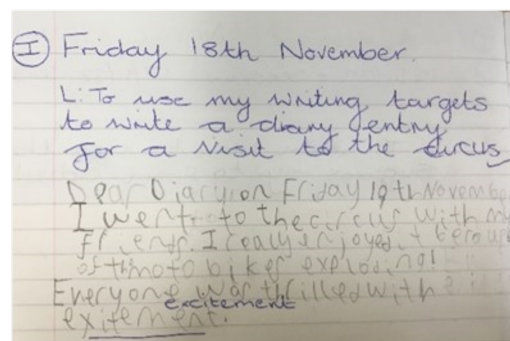 I Friday 18th November.
L: To use my writing targets
to write a diary entry
for a visit to the circus
Dear Diary on Friday 19th Novembe
I went to the circus with m
friends. I really enjoyed it
of the moto bikes exploding!
Everyone was thrilled with
excitement
exitement.